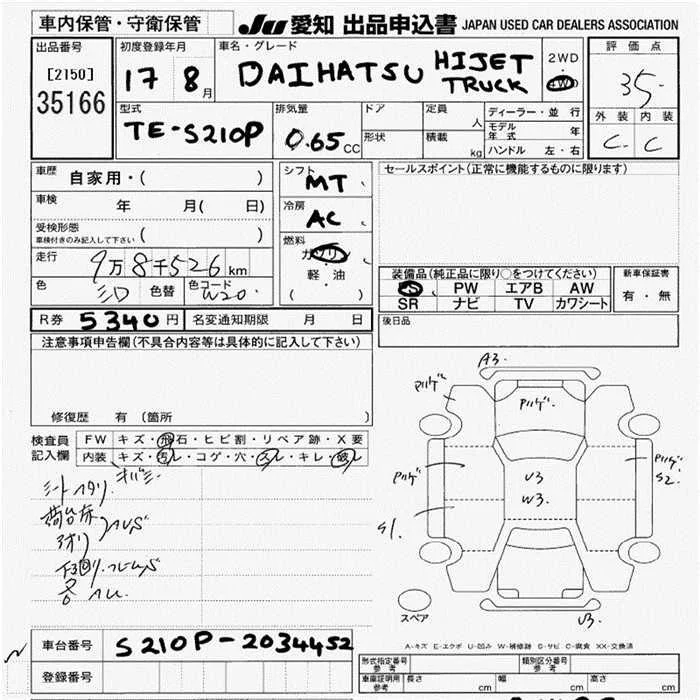 車内保管・守衛保管 JU 愛知 出品申込書 JAPAN USED CAR DEALERS ASSOCIATION
出品番号 初度登録年月 車名・グレード 評価点
[2150] 17 8月 DAIHATSU HIJET TRUCK 2WD 4WD 35
35166
型式 排気量 ドア 定員 人 ディーラー・並行 外装 内装
TE-S210P 0.65cc 形状 積載 kg モデル年式 年 C C
ハンドル 左・右
車歴 自家用・( ) シフト MT セールスポイント(正常に機能するものに限ります)
車検 年 月( 日) 冷房 AC
受検形態 車検付きのみ記入して下さい ( ) 燃料 ガソリン
走行 9万8千526km ・軽・油
装備品(純正品に限り○をつけてください) 新車保証書
色 色替 色コード W20 ( ) PS PW エアB AW 有・無
SR ナビ TV カワシート
R券 5340円 名変通知期限 月 日 後日品
注意事項申告欄(不具合内容等は具体的に記入して下さい)
修復歴 有 (箇所 )
検査員記入欄 FW キズ・飛石・ヒビ割・リペア跡・X要
内装 キズ・汚レ・コゲ・穴・スレ・キレ・破レ
A3.
U3
W3.
S2.
S1.
U3.
スペア
A-キズ E-エクボ U-凹み W-補修跡 S-サビ C-腐食 XX-交換済
車台番号 S210P-2034452
登録番号
形式指定番号 参考 類別区分番号 参考
車庫証明用 参考 長さ cm 幅 cm 高さ cm